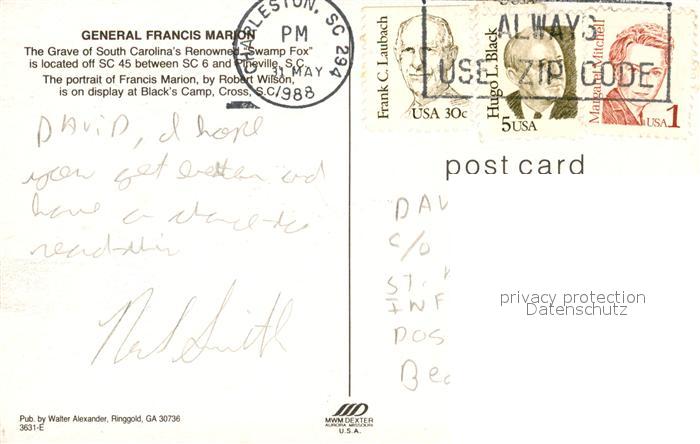 GENERAL FRANCIS MARION
The Grave of South Carolina's Renowned "Swamp Fox"
is located off SC 45 between SC 6 and Pineville, S.C.
The portrait of Francis Marion, by Robert Wilson,
is on display at Black's Camp, Cross, S.C.
CHARLESTON, SC 294
PM
31 MAY
1988
ALWAYS
USE ZIP CODE
Frank C. Laubach
USA 30c
Hugo L. Black
5 USA
Margaret Mitchell
USA 1
post card
David, I hope
you get better and
have a chance to
read this
Smith
DAV
c/o
ST.
INF
DOS
Bea
privacy protection
Datenschutz
Pub. by Walter Alexander, Ringgold, GA 30736
3631-E
MWM DEXTER
AURORA MISSOURI
U.S.A.